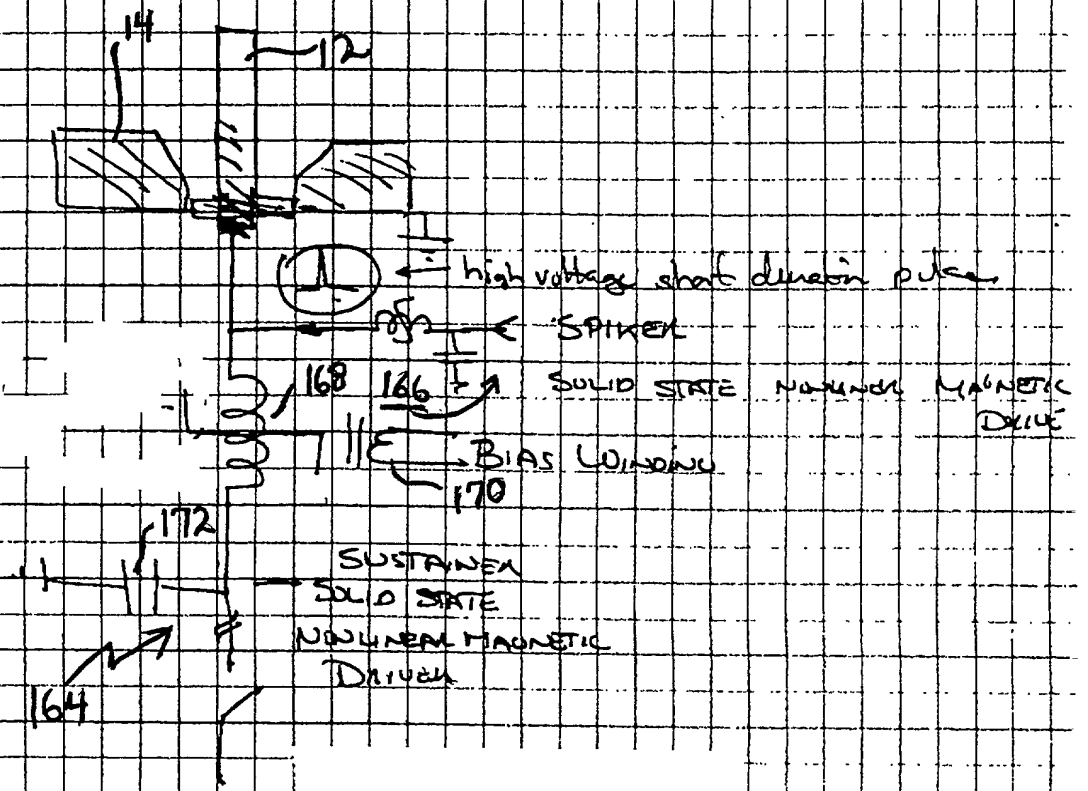 14
12
high voltage short duration pulse
SPIKER
168
166
SOLID STATE NONLINEAR MAGNETIC
DRIVE
BIAS WINDING
170
172
SUSTAINER
SOLID STATE
NONLINEAR MAGNETIC
DRIVER
164